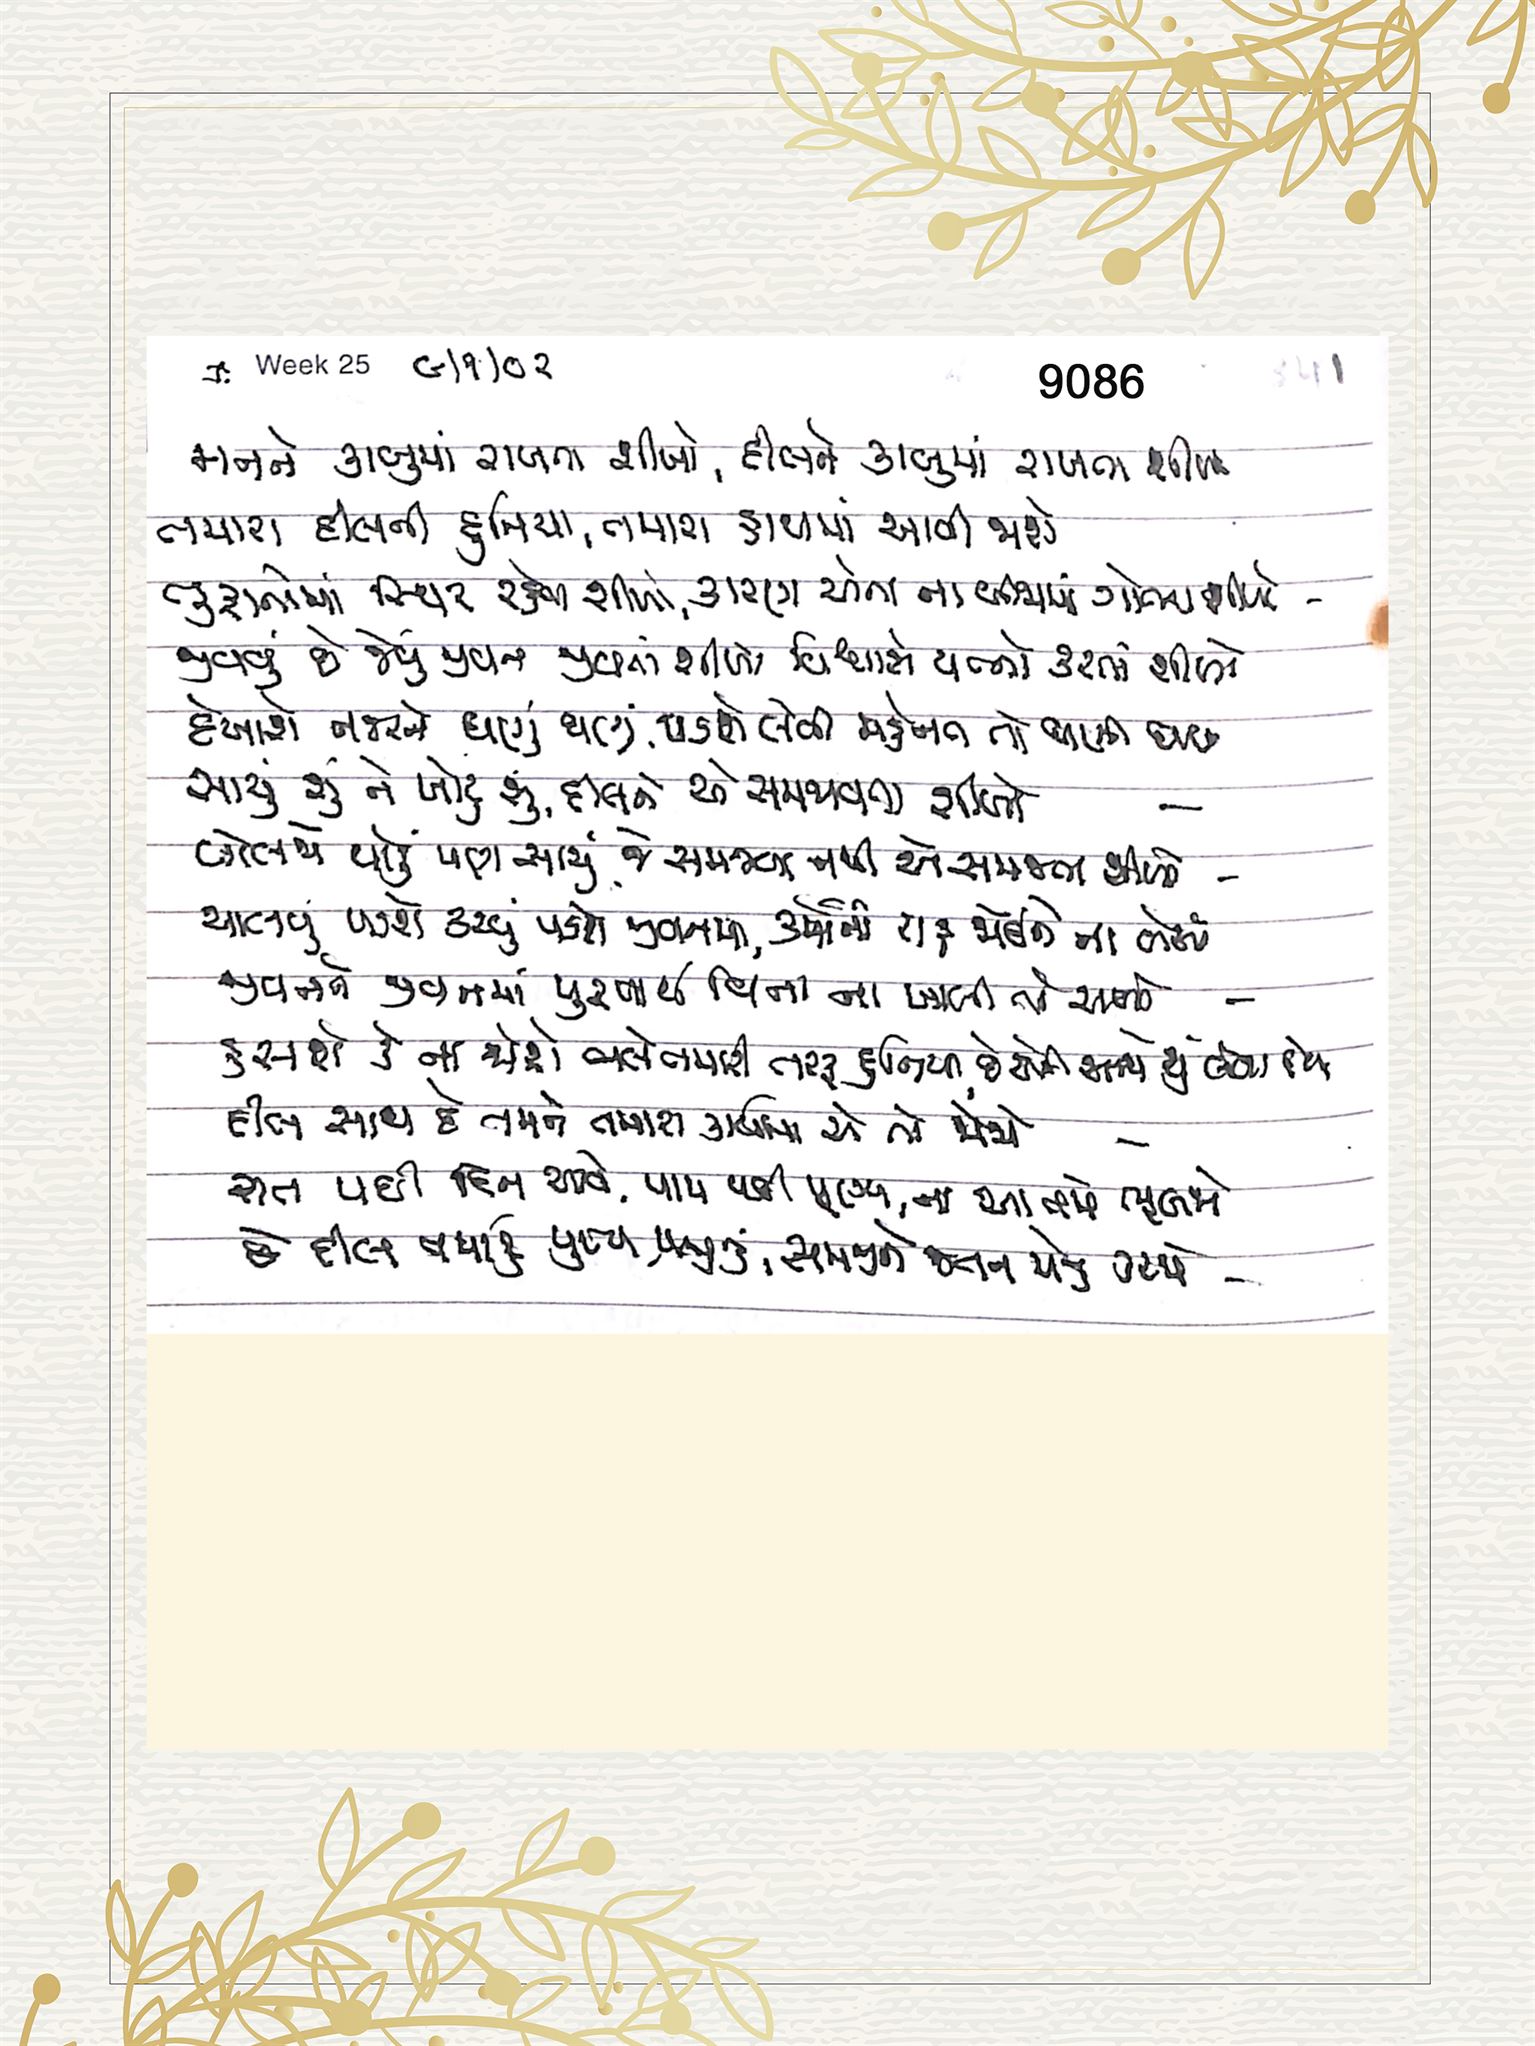 ૐ Week 25 ૯)૧)૦૨ 9086
મનને કાબુમાં રાખતા શીખો, દીલને કાબુમાં રાખતા શીખો
તમારા દીલની દુનિયા, તમારા હાથમાં આવી જાશે
તુફાનોમાં સ્થિર રહેવા શીખો, કારણ એના ના બીજામાં ગોતતા શીખો -
જીવવું છે જેવું જીવન જીવતાં શીખો વિશ્વાસે યત્નો કરતાં શીખો
દેખાશે નજરને ઘણું ઘણું, પડશે લેવી મહેનત તો
સાચું શું ને ખોટું શું, દીલને એ સમજાવતા શીખો -
બોલજે થોડું પણ સાચું, જે સમજતા નથી એ સમજતા શીખો -
ચાલવું પડશે કરવું પડશે જીવનમાં, કર્મોની રાહ જોઈને ના બેસો
જીવનને જીવનમાં પુરષાર્થ વિના ના ખાલી તો રાખો -
હસશે કે ના જોશે ભલે તમારી તરફ દુનિયા, છે એની સાથે શું લેવા દેવા
દીલ સાથ દે તમને તમારા કાર્યોમાં એ તો જોજો -
રાત પછી દિન આવે, પાપ પછી પૂણ્ય, ના આ તમે ભૂલજો
છે દીલ તમારું પુણ્ય પ્રભુનું, સમજીને જતન એનું કરજો -